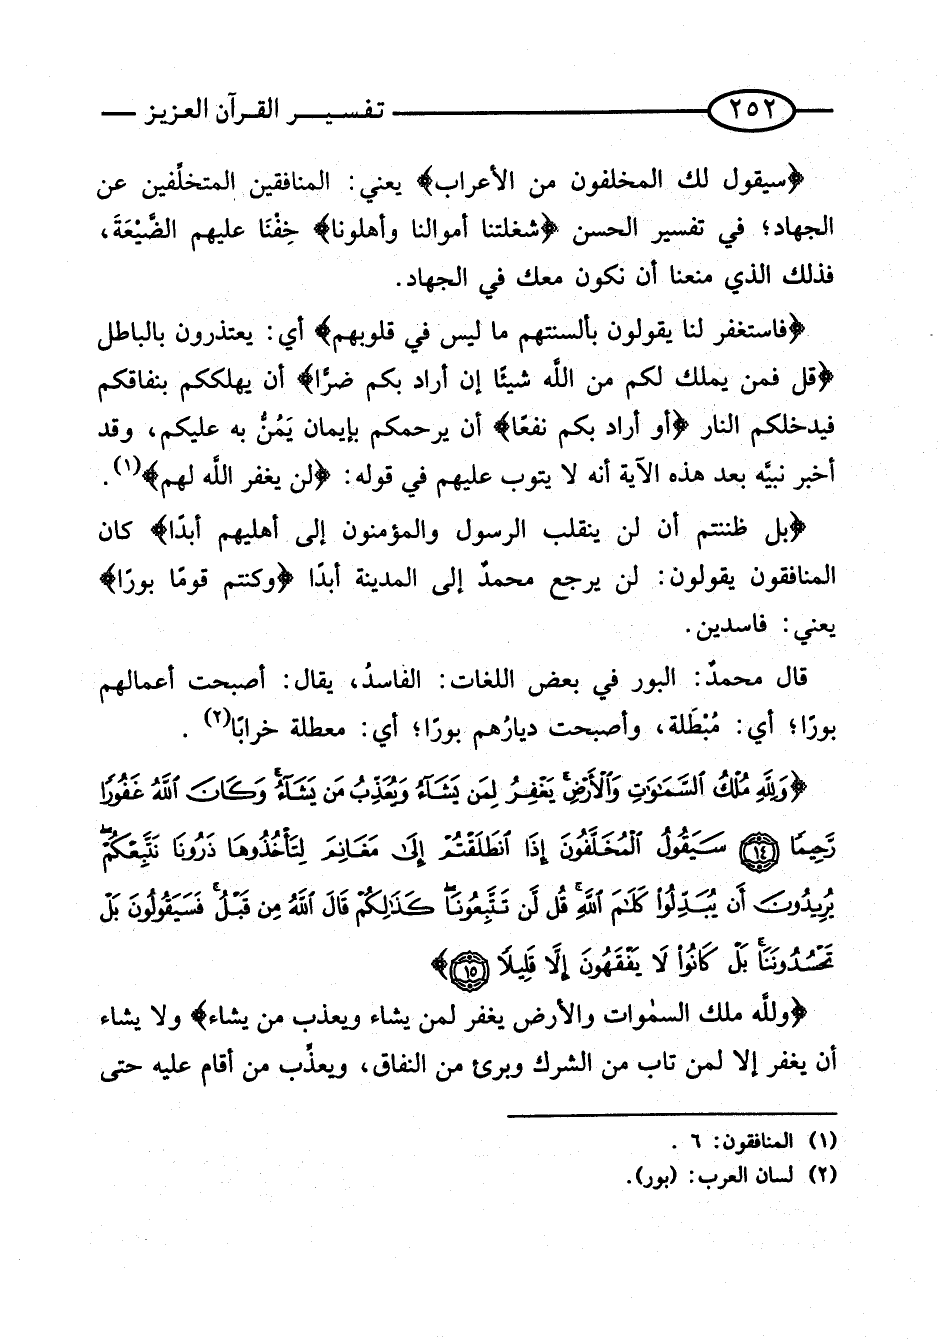 ٢٥٢ تفسير القرآن العزيز
﴿سيقول لك المخلفون من الأعراب﴾ يعني: المنافقين المتخلِّفين عن
الجهاد؛ في تفسير الحسن ﴿شغلتنا أموالنا وأهلونا﴾ خِفْنَا عليهم الضَّيْعَةَ،
فذلك الذي منعنا أن نكون معك في الجهاد.
﴿فاستغفر لنا يقولون بألسنتهم ما ليس في قلوبهم﴾ أي: يعتذرون بالباطل
﴿قل فمن يملك لكم من اللَّه شيئًا إن أراد بكم ضرًّا﴾ أن يهلككم بنفاقكم
فيدخلكم النار ﴿أو أراد بكم نفعًا﴾ أن يرحمكم بإيمان يَمُنُّ به عليكم، وقد
أخبر نبيَّه بعد هذه الآية أنه لا يتوب عليهم في قوله: ﴿لن يغفر اللَّه لهم﴾(١).
﴿بل ظننتم أن لن ينقلب الرسول والمؤمنون إلى أهليهم أبدًا﴾ كان
المنافقون يقولون: لن يرجع محمدٌ إلى المدينة أبدًا ﴿وكنتم قومًا بورًا﴾
يعني: فاسدين.
قال محمدٌ: البور في بعض اللغات: الفاسدُ، يقال: أصبحت أعمالهم
بورًا؛ أي: مُبْطَلة، وأصبحت ديارُهم بورًا؛ أي: معطلة خرابًا(٢).
﴿وَلِلَّهِ مُلْكُ ٱلسَّمَٰوَٰتِ وَٱلْأَرْضِۚ يَغْفِرُ لِمَن يَشَآءُ وَيُعَذِّبُ مَن يَشَآءُۚ وَكَانَ ٱللَّهُ غَفُورًا
رَّحِيمًا ١٤ سَيَقُولُ ٱلْمُخَلَّفُونَ إِذَا ٱنطَلَقْتُمْ إِلَىٰ مَغَانِمَ لِتَأْخُذُوهَا ذَرُونَا نَتَّبِعْكُمْۖ
يُرِيدُونَ أَن يُبَدِّلُوا۟ كَلَٰمَ ٱللَّهِۚ قُل لَّن تَتَّبِعُونَاۖ كَذَٰلِكُمْ قَالَ ٱللَّهُ مِن قَبْلُۖ فَسَيَقُولُونَ بَلْ
تَحْسُدُونَنَاۚ بَلْ كَانُوا۟ لَا يَفْقَهُونَ إِلَّا قَلِيلًا ١٥﴾
﴿وللَّه ملك السمٰوات والأرض يغفر لمن يشاء ويعذب من يشاء﴾ ولا يشاء
أن يغفر إلا لمن تاب من الشرك وبرئ من النفاق، ويعذِّب من أقام عليه حتى
(١) المنافقون: ٦ .
(٢) لسان العرب: (بور).